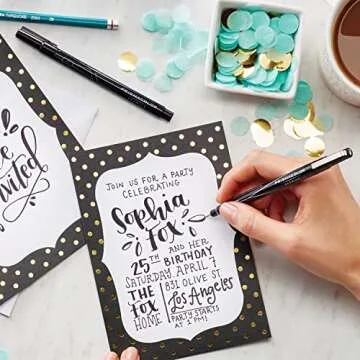 !
e
vited
JOIN US FOR A PARTY
CELEBRATING
Sophia
Fox
25TH AND HER
BIRTHDAY
SATURDAY, APRIL 7
THE
FOX
HOME
831 OLIVE ST
Los Angeles
PARTY STARTS
AT 2 PM!